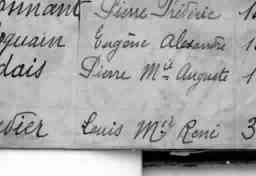 onnant Pierre Frédéric 1
quain Eugène Alexandre 1
dais Pierre Mie Auguste 1
dier Louis Mie René 3